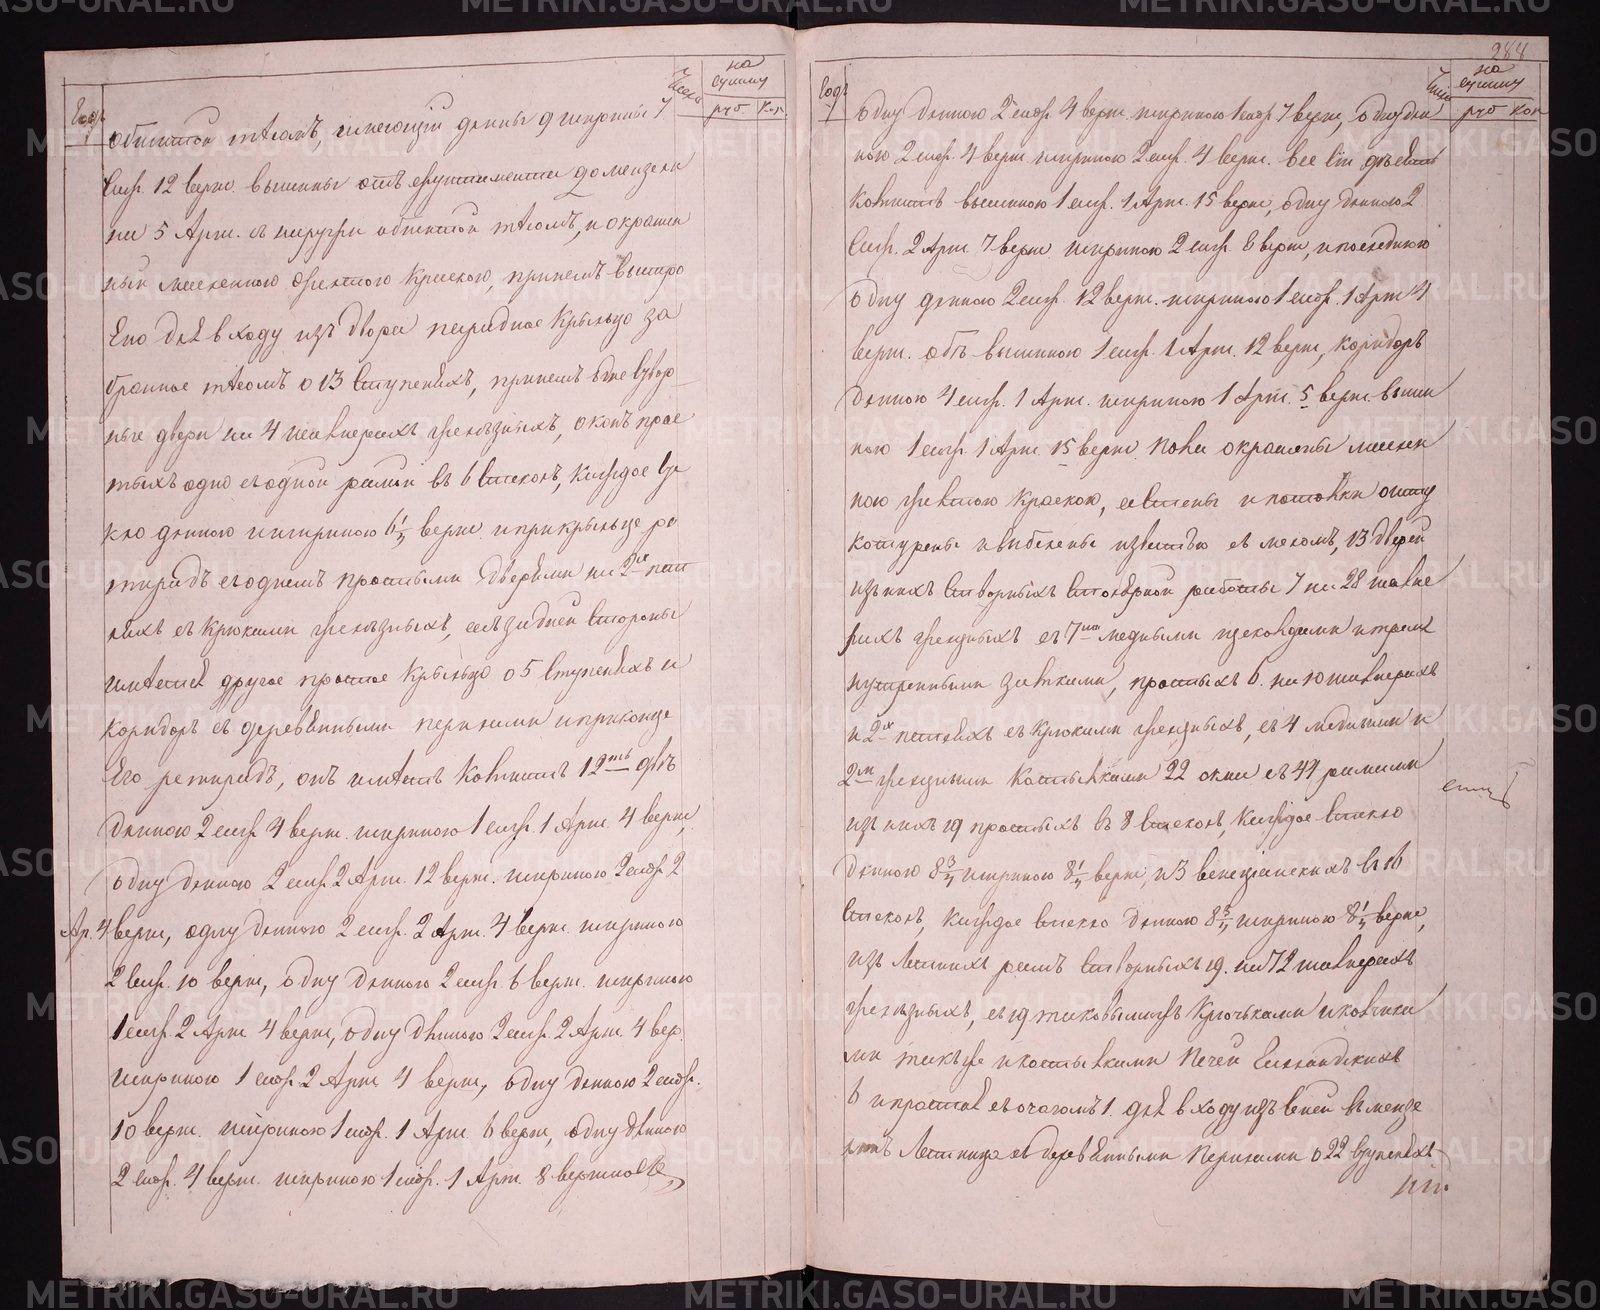 Годъ
Число
на сумму
руб. Коп.
обшитой тёсомъ, имеющiй длины 9 ширины 7
Саж. 12 верш. вышины отъ фундамента до меззени
на 5 Арш. съ наружи обшитой тёсомъ, и окрашен
ный масленною желтою краскою, при немъ выстро
Ено для входу изъ двора парадное Крыльцо за
бранное тёсомъ о 13 ступеняхъ, при немъ двое створ
ные двери на 4 шалнерахъ железныхъ, оконъ прос
тыхъ одно съ одной рамой въ 6 стеколъ, Каждое Сте
кло длиною и шириною 6 1/2 верш. и при крыльце ре
тирадъ съ однемъ простыми дверями на 2хъ пет
ляхъ съ крюками железныхъ, съ задней стороны
имѣетъ другое простое Крыльцо о 5 ступеняхъ и
Коридоръ съ деревянными перилами и при конце
Его ретирадъ, онъ имѣетъ Комнатъ 12ть двѣ
длиною 2 саж. 4 верш. шириною 1 саж. 1 Арш. 4 верш,
одну длиною 2 саж. 2 Арш. 12 верш. шириною 2 саж. 2
Ар. 4 верш, одну длиною 2 саж. 2 Арш. 4 верш. шириною
2 Саж. 10 верш, одну длиною 2 саж. 6 верш. шириною
1 саж. 2 Арш 4 верш, одну длиною 2 саж. 2 Арш. 4 вер.
шириною 1 саж. 2 Арш 4 верш, одну длиною 2 саж.
10 верш. шириною 1 саж. 1 Арш. 6 верш, одну длиною
2 Саж. 4 верш. шириною 1 саж. 1 Арш. 8 вершковъ,
288
Годъ
Число
на сумму
руб Коп
одну длиною 2 саж. 4 верш. шириною 1 саж 7 верш, одну дли
ною 2 саж. 4 верш. шириною 2 саж. 4 верш. все сiи десять
Комнатъ вышиною 1 саж. 1 Арш. 15 верш, одну длиною 2
Саж. 2 Арш 7 верш шириною 2 саж 8 верш, и последнюю
одну длиною 2 саж. 12 верш. шириною 1 саж. 1 Арш 4
верш. обѣ вышиною 1 саж. 1 Арш. 12 верш, Коридоръ
длиною 4 саж. 1 Арш. шириною 1 Арш. 5 верш. выши
ною 1 саж. 1 Арш. 15 верш. полы окрашены маслен
ною желтою Краскою, а стены и потолки ошту
котурены и выбелены известью съ меломъ, 13 дверей
изъ нихъ створныхъ столярной работы 7 на 28 шалне
рахъ железныхъ съ 7ю медными щеколдами и тремя
нутренными замками, простыхъ 6. на 10 шалнерахъ
и 2хъ петляхъ съ Крюками железныхъ, съ 4 медными и
2мя железными Костыльками 22 окна съ 44 рамами
изъ нихъ 19 простыхъ въ 8 стеколъ, Каждое стекло
длиною 8 3/4 шириною 8 1/4 верш, и 3 венецiанскихъ въ 16
Стеколъ, Каждое стекло длиною 8 3/4 шириною 8 1/4 верш,
изъ Летнихъ рамъ створныхъ 19. на 72 шалнерахъ
железныхъ, съ 19 таковымижъ Крючьками и колчка
ми такъ же и костыльками Печей Галландскихъ
6 и простая съ очагомъ 1. для входу изъ сеней въ меззе
нинъ Лестница съ деревянными Перилами о 22 ступеняхъ